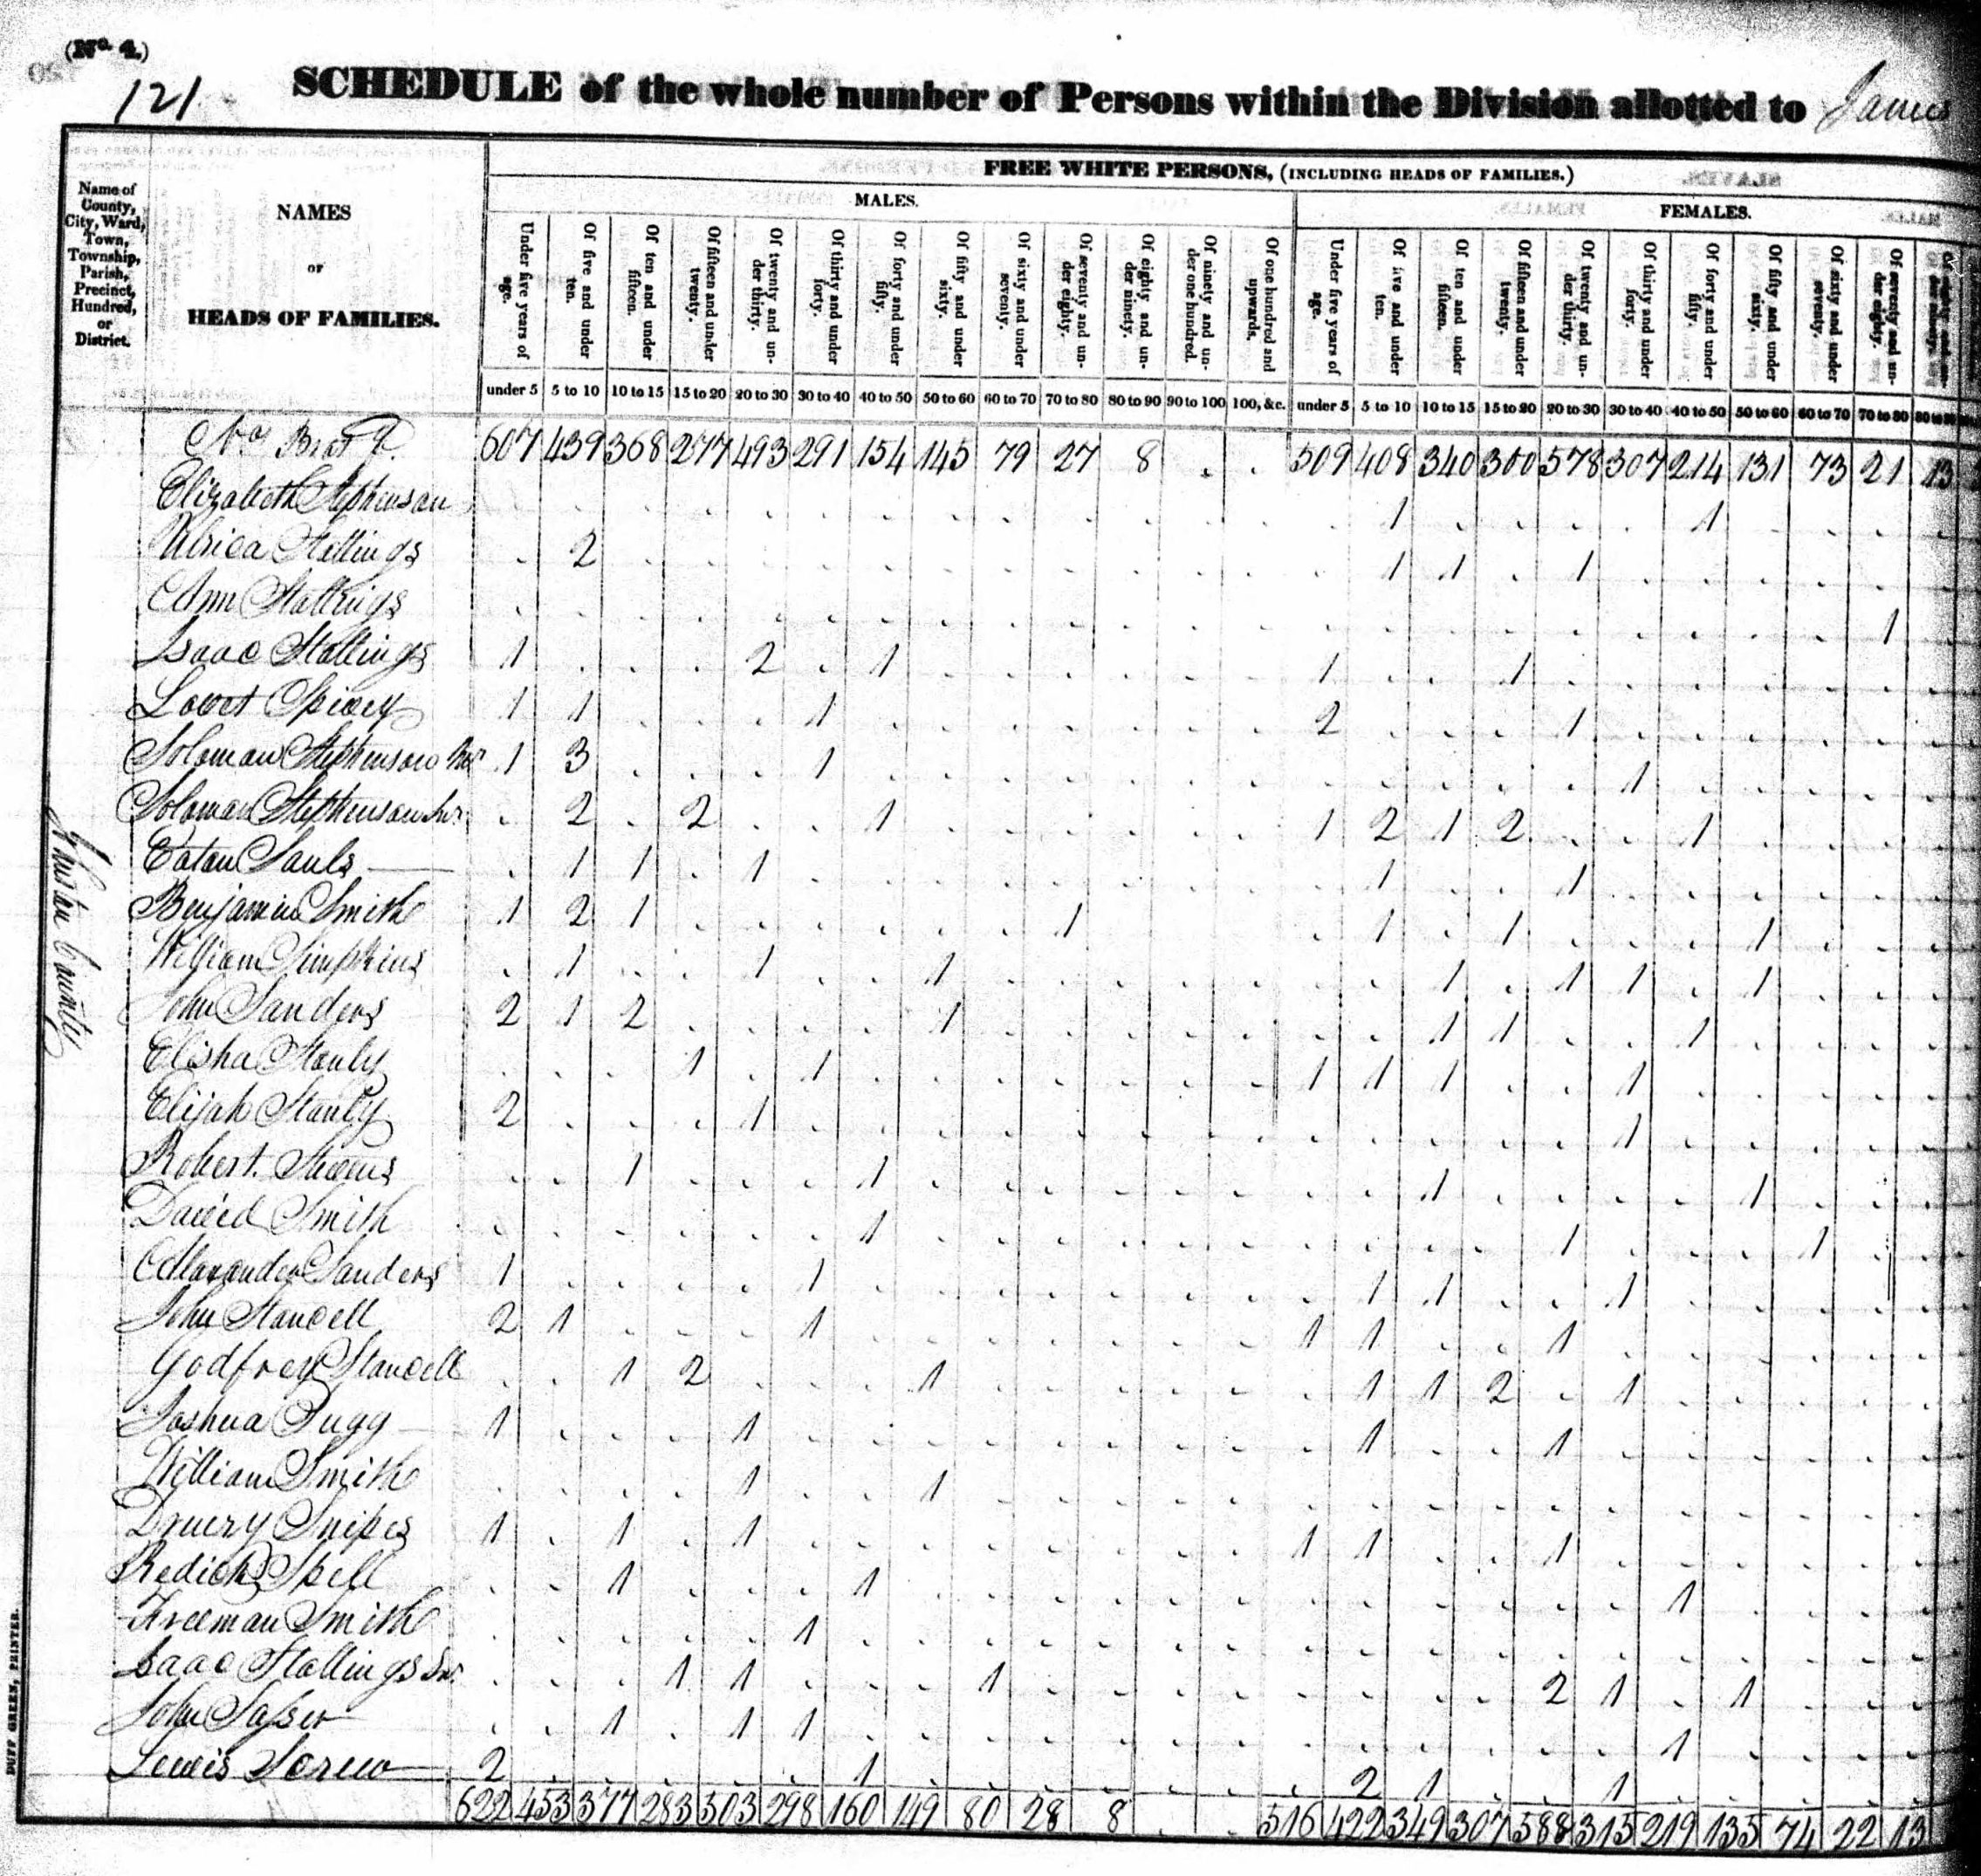 (No. 4.)
121
SCHEDULE of the whole number of Persons within the Division allotted to James
Name of County, City, Ward, Town, Township, Parish, Precinct, Hundred, or District.
NAMES
OF
HEADS OF FAMILIES.
FREE WHITE PERSONS, (INCLUDING HEADS OF FAMILIES.)
MALES. FEMALES.
Under five years of age. Of five and under ten. Of ten and under fifteen. Of fifteen and under twenty. Of twenty and under thirty. Of thirty and under forty. Of forty and under fifty. Of fifty and under sixty. Of sixty and under seventy. Of seventy and under eighty. Of eighty and under ninety. Of ninety and under one hundred. Of one hundred and upwards. Under five years of age. Of five and under ten. Of ten and under fifteen. Of fifteen and under twenty. Of twenty and under thirty. Of thirty and under forty. Of forty and under fifty. Of fifty and under sixty. Of sixty and under seventy. Of seventy and under eighty.
under 5 5 to 10 10 to 15 15 to 20 20 to 30 30 to 40 40 to 50 50 to 60 60 to 70 70 to 80 80 to 90 90 to 100 100, &c. under 5 5 to 10 10 to 15 15 to 20 20 to 30 30 to 40 40 to 50 50 to 60 60 to 70 70 to 80
607 439 368 277 493 291 154 145 79 27 8 . . 509 408 340 300 578 307 214 131 73 21 13
Elizabeth Stephenson 1 1
Stallings 2 1 1 1
Ann Stallings 1
Isaac Stallings 1 2 1 1 1
Lovet Spivey 1 1 1 2 1
Soloman Stephenson 1 3 1 1
Soloman Stephenson Snr. 2 2 1 1 2 1 2 1
Eaton Sauls 1 1 1 1 1
Benjamin Smith 1 2 1 1 1 1 1
William Simpkins 1 1 1 1 1 1 1
John Sanders 2 1 2 1 1 1 1
Elisha Stanly 1 1 1 1 1 1
Elijah Stanly 2 1 1
Robert Stevens 1 1 1 1
David Smith 1 1 1
Alexander Sanders 1 1 1 1 1
John Stancell 2 1 1 1 1 1
Godfrey Stancell 1 2 1 1 1 2 1
Joshua Sugg 1 1 1 1
William Smith 1 1
Druery Snipes 1 1 1 1 1 1
Redick Spell 1 1 1
Freeman Smith 1
Isaac Stallings Snr. 1 1 1 2 1 1
John Sasser 1 1 1 1
Lewis 2 1 2 1 1
622 453 377 283 503 298 160 149 80 28 8 . . 516 422 349 307 588 315 219 135 74 22 13
County
DUFF GREEN, PRINTER.